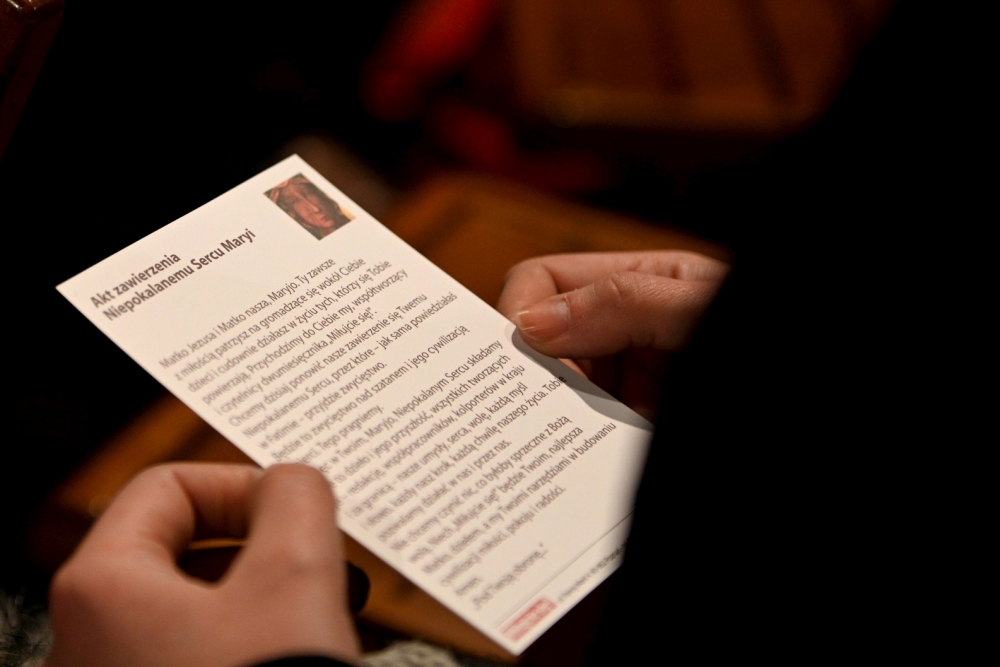 Akt zawierzenia
Niepokalanemu Sercu Maryi
Matko Jezusa i Matko nasza, Maryjo. Ty zawsze
z miłością patrzysz na gromadzące się wokół Ciebie
dzieci i cudownie działasz w życiu tych, którzy się Tobie
powierzają. Przychodzimy do Ciebie my, współtworzący
i czytelnicy dwumiesięcznika „Miłujcie się!”.
Chcemy dzisiaj ponowić nasze zawierzenie się Twemu
Niepokalanemu Sercu, przez które – jak sama powiedziałaś
w Fatimie – przyjdzie zwycięstwo.
Będzie to zwycięstwo nad szatanem i jego cywilizacją
śmierci. I jego pragniemy.
w Twoim, Maryjo, Niepokalanym Sercu składamy
to dzieło i jego przyszłość, wszystkich tworzących
redakcję, współpracowników, kolporterów w kraju
i za granicą – nasze umysły, serca, wolę, każdą myśl
i słowo, każdy nasz krok, każdą chwilę naszego życia. Tobie
pozwalamy działać w nas i przez nas.
Nie chcemy czynić nic, co byłoby sprzeczne z Bożą
wolą. Niech „Miłujcie się!” będzie Twoim, najlepsza
Matko, dziełem, a my Twoimi narzędziami w budowaniu
cywilizacji miłości, pokoju i radości.
Amen.
„Pod Twoją obronę...”